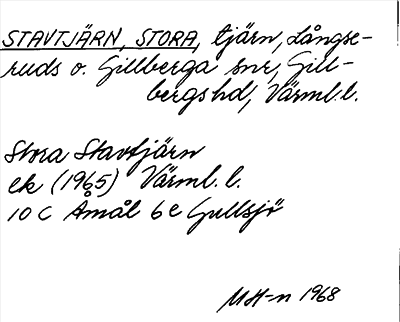 STAVTJÄRN, STORA, tjärn, Långse-
ruds o. Gillberga snr, Gill-
bergs hd, Värml. l.
Stora Stavtjärn
ek (1965) Värml. l.
10 C Åmål 6e Gullsjö
MH-n 1968